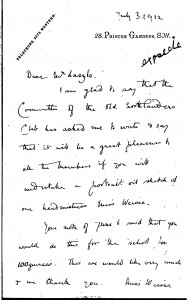 July 3. 1912
TELEPHONE 2178 WESTERN.
28. PRINCES GARDENS, S.W.
Dear Mr Laszlo.
I am glad to say that the
Committee of the Old
Club has asked me to write & say
that it will be a great pleasure to
all the members if you will
undertake a portrait oil sketch of
our headmistress Miss Wense.
Your note of June 6 said that you
would do this for the school for
100guineas. This we would like very much
& we thank you. Miss Wense